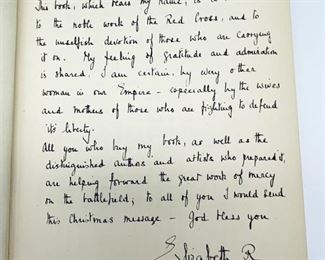 This book, which bears my name, is
to the noble work of the Red Cross, and to
the unselfish devotion of those who are carrying
it on. My feeling of gratitude and admiration
is shared, I am certain, by every other
woman in our Empire - especially by the wives
and mothers of those who are fighting to defend
its liberty.
All you who buy my book, as well as the
distinguished authors and artists who prepared it,
are helping forward the great work of mercy
on the battlefield; to all of you I would send
this Christmas message - God bless you
Elizabeth R